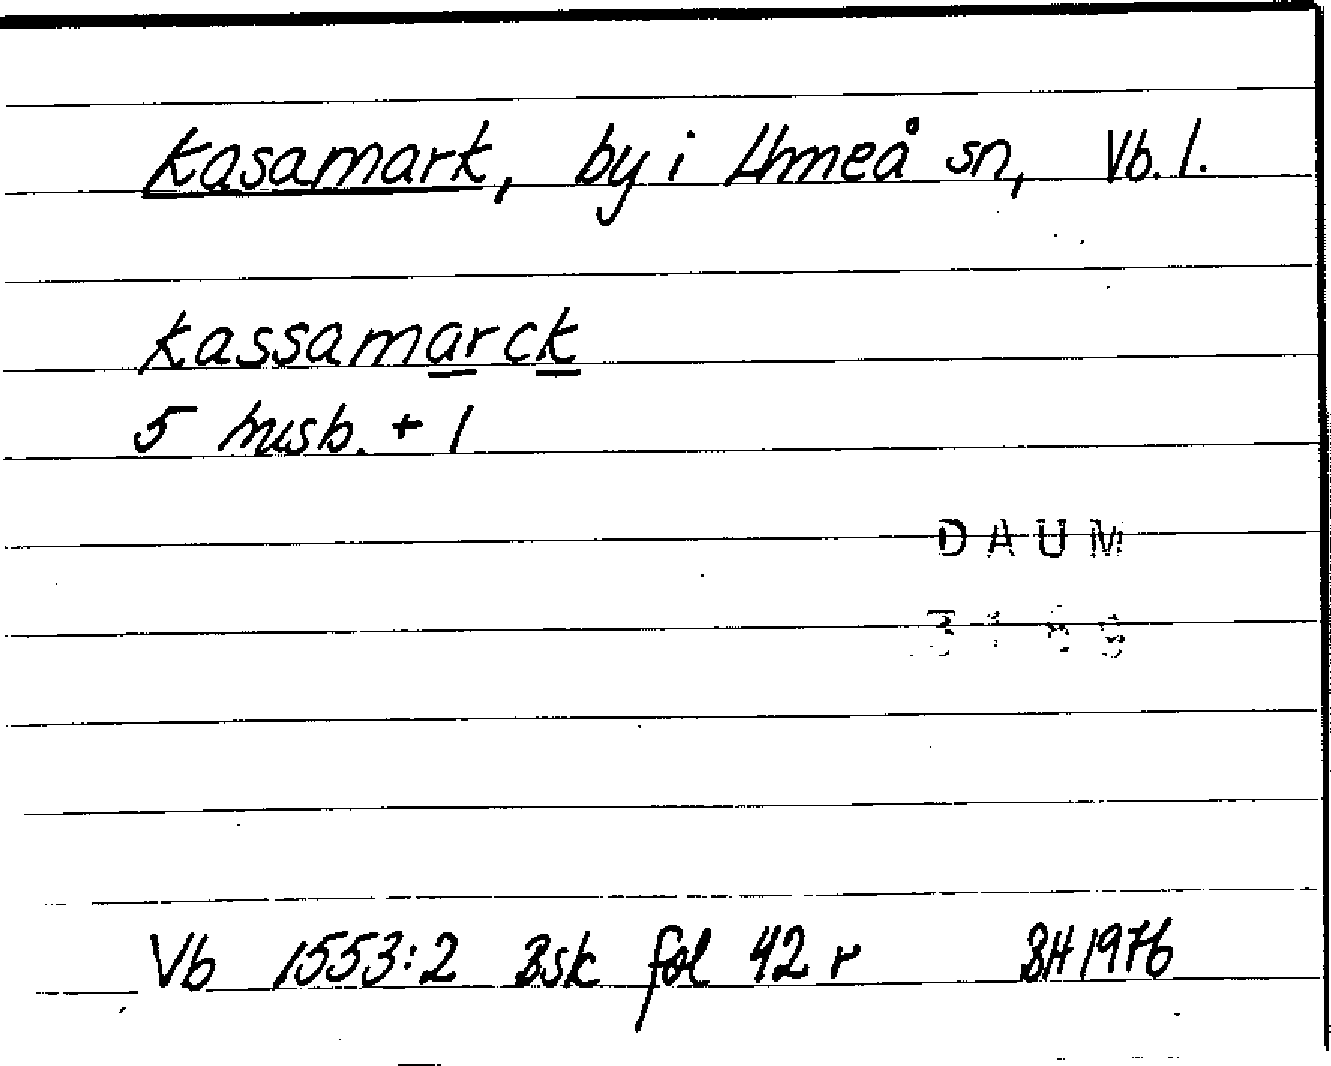 Kasamark, by i Umeå sn, Vb. l.
Kassamarck
5 husb. + 1
DAUM
Vb 1553:2 Bsk fol 42 r BH 1976